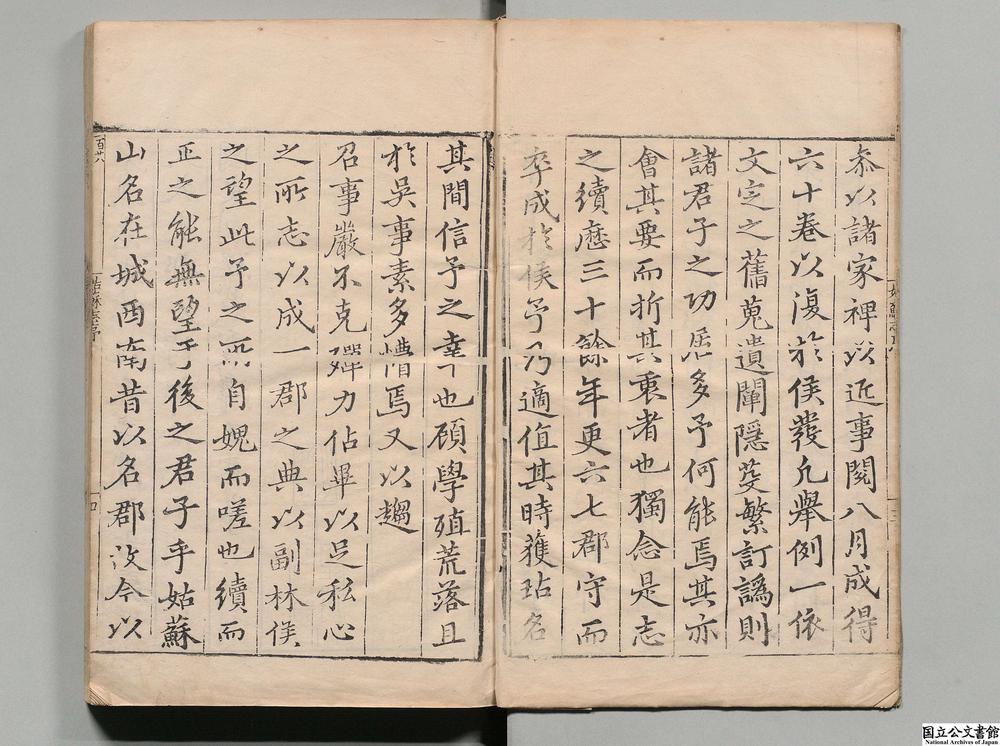 叅以諸家裨以近事閱八月成得
六十卷以復於侯發凡舉例一依
文定之舊蒐遺闡隱芟繁訂譌則
諸君子之功居多予何能焉其亦
會其要而折其衷者也獨念是志
之續歷三十餘年更六七郡守而
卒成於侯予乃適值其時獲玷名
其間信予之幸也顧學殖荒落且
於吳事素多懵焉又以趨
召事嚴不克殫力佔畢以足私心
之所志以成一郡之典以副林侯
之望此予之所自媿而嗟也續而
正之能無望于後之君子乎姑蘇
山名在城西南昔以名郡汝今以
百廿八
姑蘇志序
四
国立公文書館
National Archives of Japan